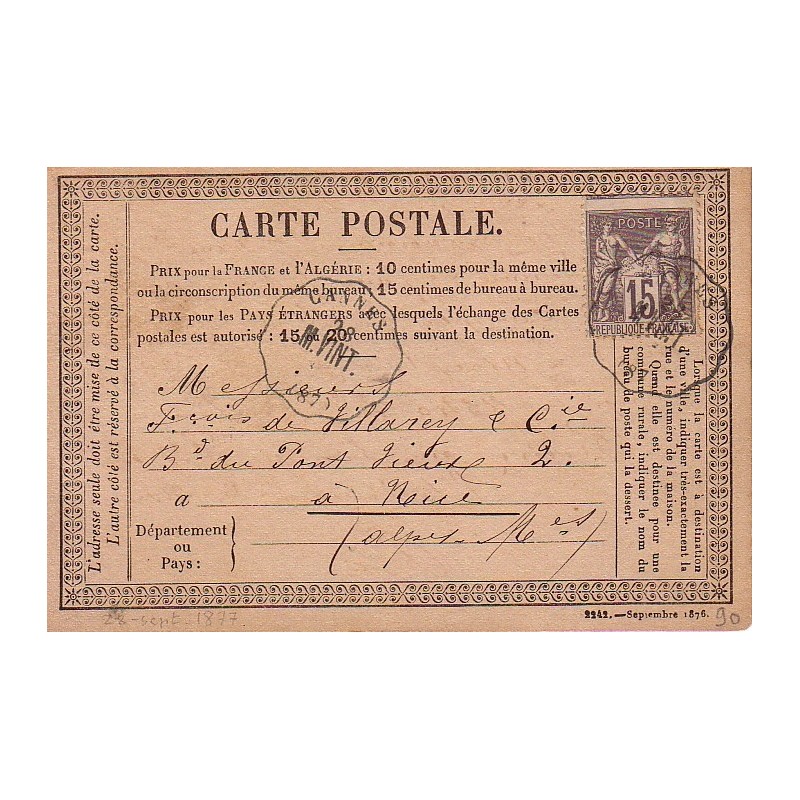 CARTE POSTALE.
PRIX pour la FRANCE et l'ALGÉRIE : 10 centimes pour la même ville
ou la circonscription du même bureau; 15 centimes de bureau à bureau.
PRIX pour les PAYS ÉTRANGERS avec lesquels l'échange des Cartes
postales est autorisé : 15 ou 20 centimes suivant la destination.
L'adresse seule doit être mise de ce côté de la carte.
L'autre côté est réservé à la correspondance.
POSTE
15
RÉPUBLIQUE FRANÇAISE
CANNES
28
VINT.
Messieurs
Fçois de Villarey & Cie
Bd du Pont Vieux 2.
a à Nice
(Alpes-Mes)
Département
ou
Pays :
Lorsque la carte est à destination
d'une ville, indiquer très-exactement la
rue et le numéro de la maison.
Quand elle est destinée pour une
commune rurale, indiquer le nom du
bureau de poste qui la dessert.
28-sept-1877.
2242.—Septembre 1876.
90